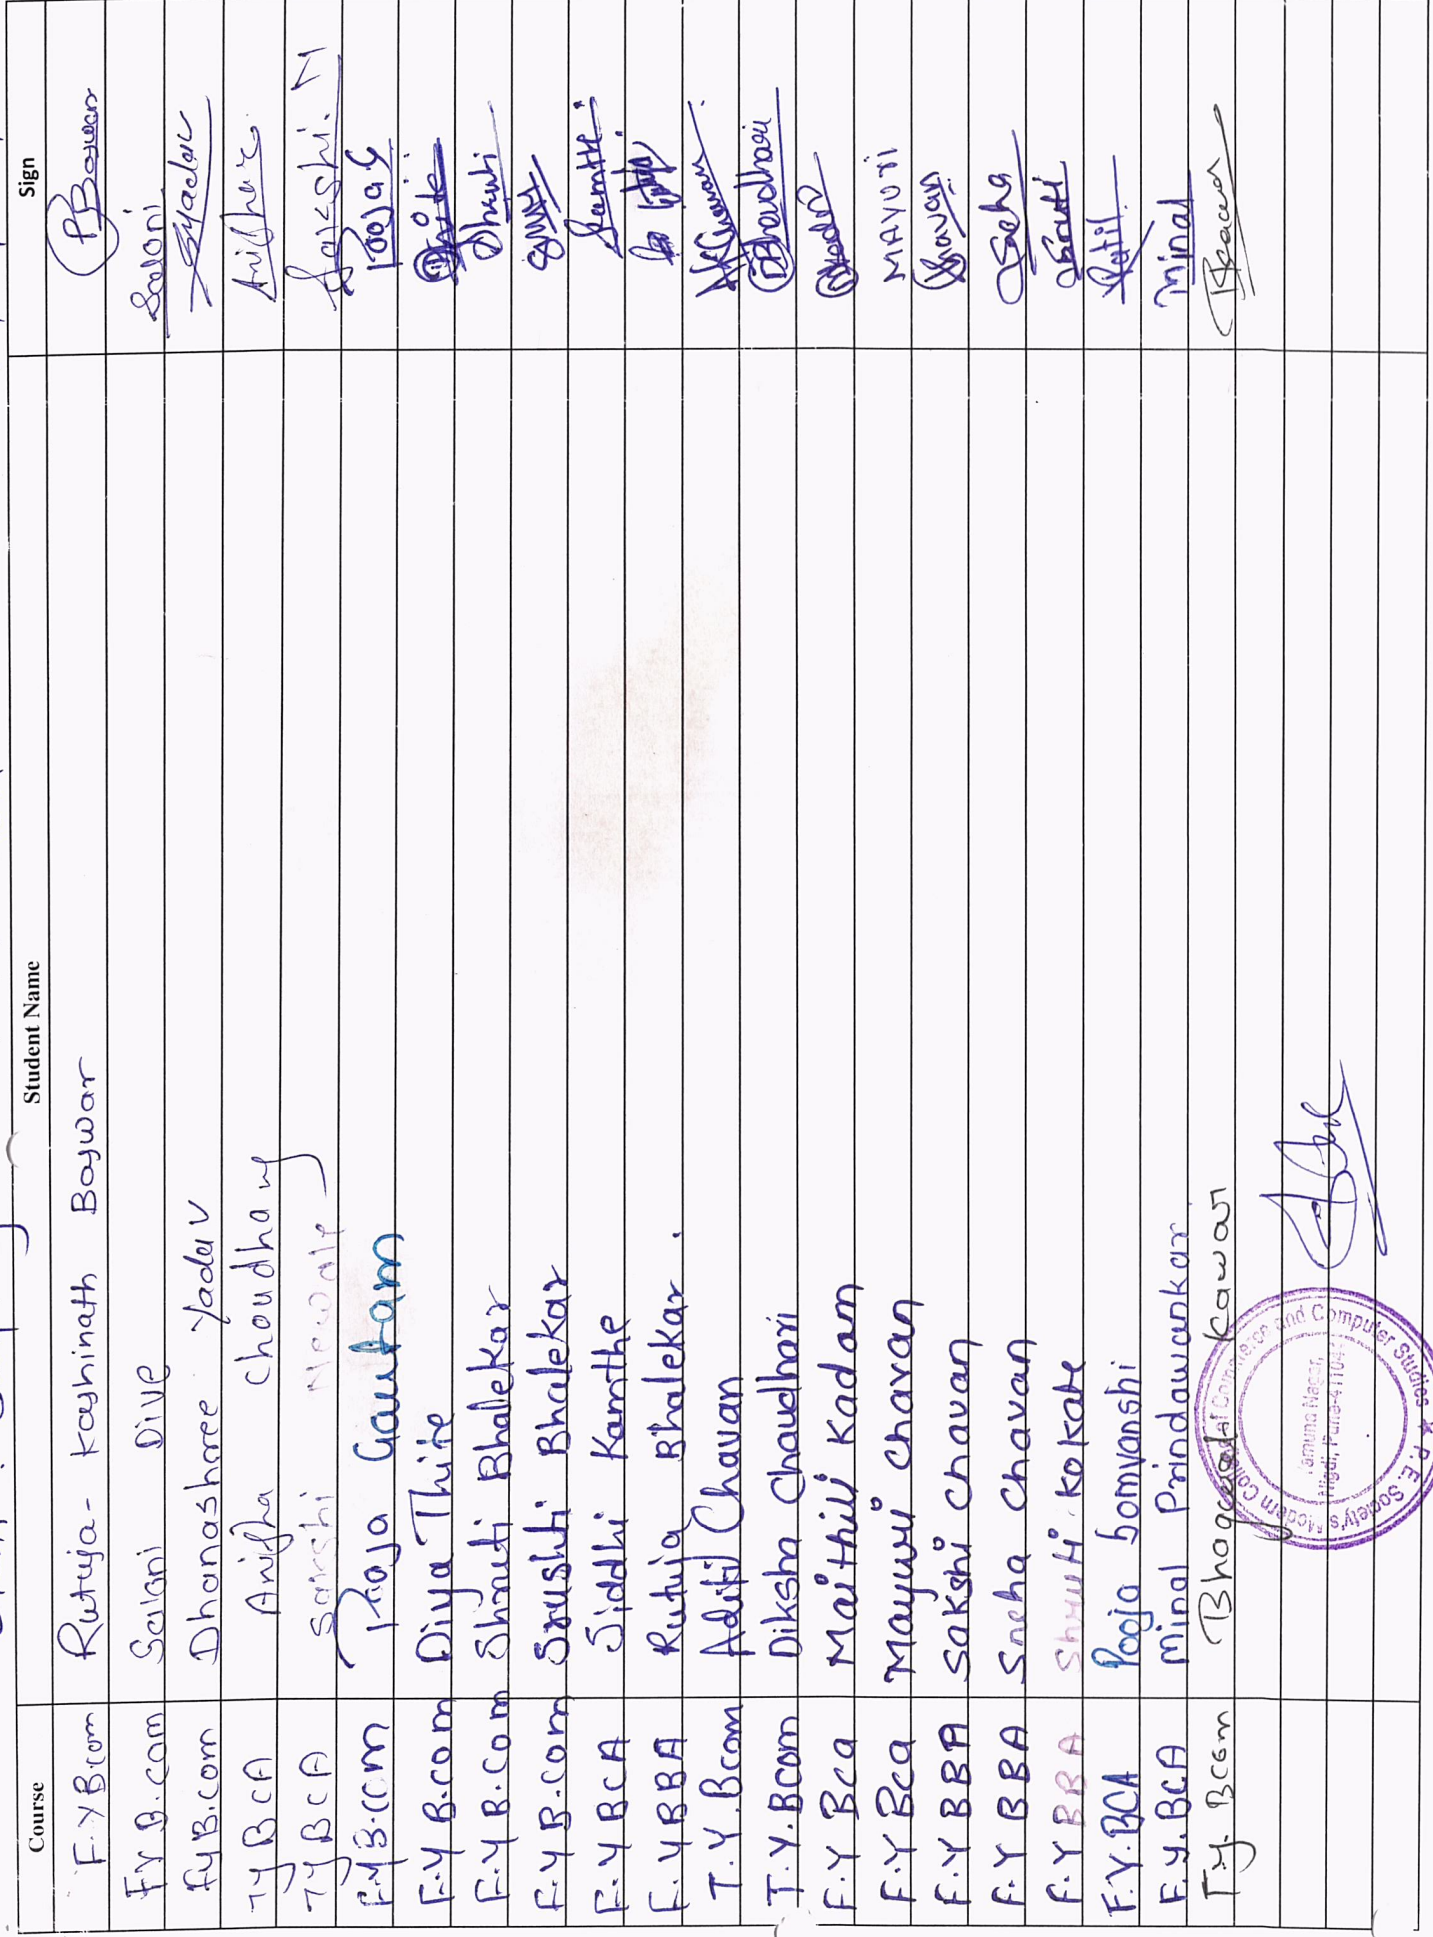 Course Student Name Sign
F.Y B.com Rutuja - Kashinath Baswar PBaswar
F.Y B.com Saloni Dive Saloni
F.y B.com Dhanashree Yadav Syadav
T Y B C A Anisha Choudhary Anisha.c
T Y B C A Sakshi Newale Sakshi.N
F.Y B.com Pooja Gautam Pooja G
F.Y B.com Diya Thite
F.Y B.com Shruti Bhalekar Shruti
F.Y B.com Srushti Bhalekar
F.Y B C A Siddhi Kamthe
F.Y B B A Rutuja Bhalekar.
T.Y.Bcom Aditi Chavan
T.Y.Bcom Diksha Chaudhari DChaudhari
F.Y Bca Maithili Kadam
F.Y Bca Mayuri Chavan MAYURI
F.Y B B A Sakshi Chavan Chavan
F.Y B B A Sneha Chavan Sneha
F.Y B B A Shruti Kokate Shruti
F.Y.BCA Pooja Somvanshi Patil
F.Y.BCA Minal Prindawankar Minal
T.y. Bcom Bhagyashri Kawar
P. E. Society's Modern College of Commerce and Computer Studies
Yamuna Nagar,
Nigdi, Pune-411044